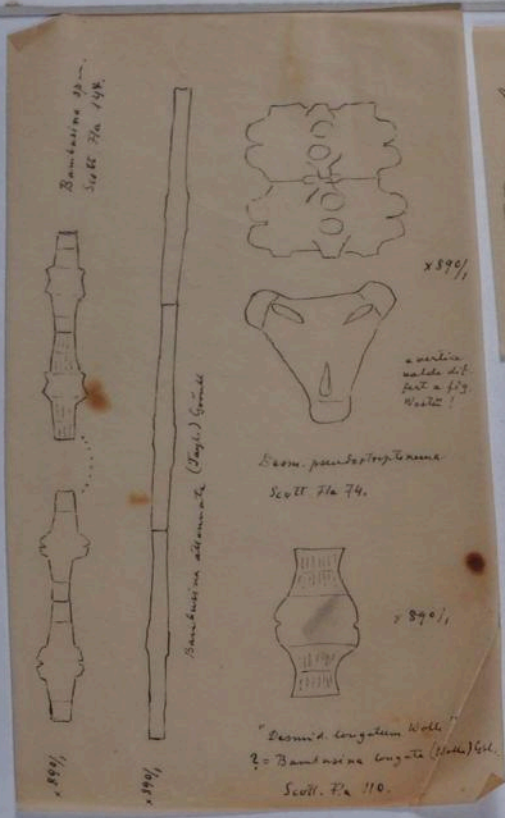 Bambusina sp. n.
Scott Fla 148.
× 890/1
× 890/1
Bambusina attenuata (Tayl.) Grönbl
× 890/1
a vertice
valde dif-
fert a fig.
Westii!
Desm. pseudostreptonema
Scott Fla 74.
× 890/1
"Desmid. longatum Wolle"
? = Bambusina longata (Wolle) Gbl.
Scott. Fla 110.